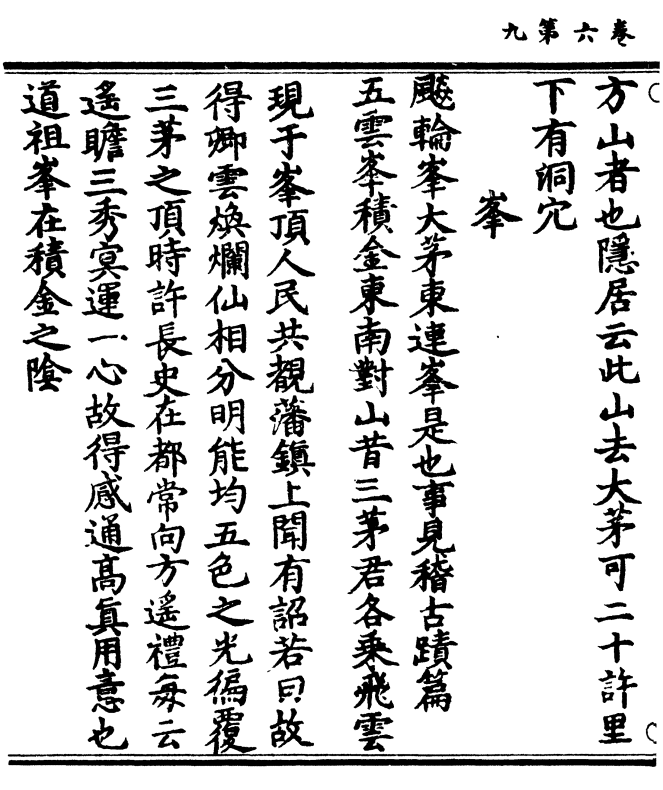 卷六第九
方山者也隱居云此山去大茅可二十許里
下有洞穴
峯
飈輪峯大茅東連峯是也事見稽古蹟篇
五雲峯積金東南對山昔三茅君各乗飛雲
現于峯頂人民共覩藩鎮上聞有詔若曰故
得卿雲煥爛仙相分明能均五色之光徧覆
三茅之頂時許長史在都常向方遥禮每云
遥瞻三秀㝠運一心故得感通髙眞用意也
道祖峯在積金之陰